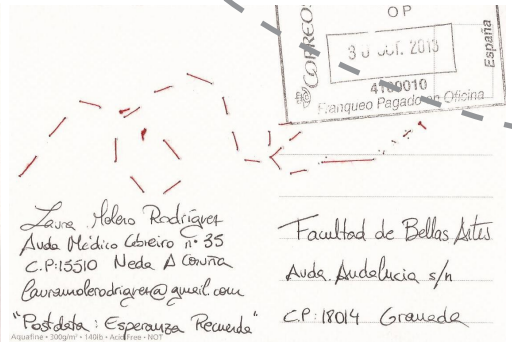 CORREOS
OP
30 OCT. 2013
4180010
Franqueo Pagado en Oficina
España
Laura Molero Rodríguez
Avda Médico Cobeiro nº 35
C.P:15510 Neda A Coruña
lauramolerodriguez@gmail.com
"Postdata: Esperanza Recuerda"
Aquafine • 300g/m² • 140lb • Acid Free • NOT
Facultad de Bellas Artes
Avda. Andalucia s/n
C.P: 18014 Granada